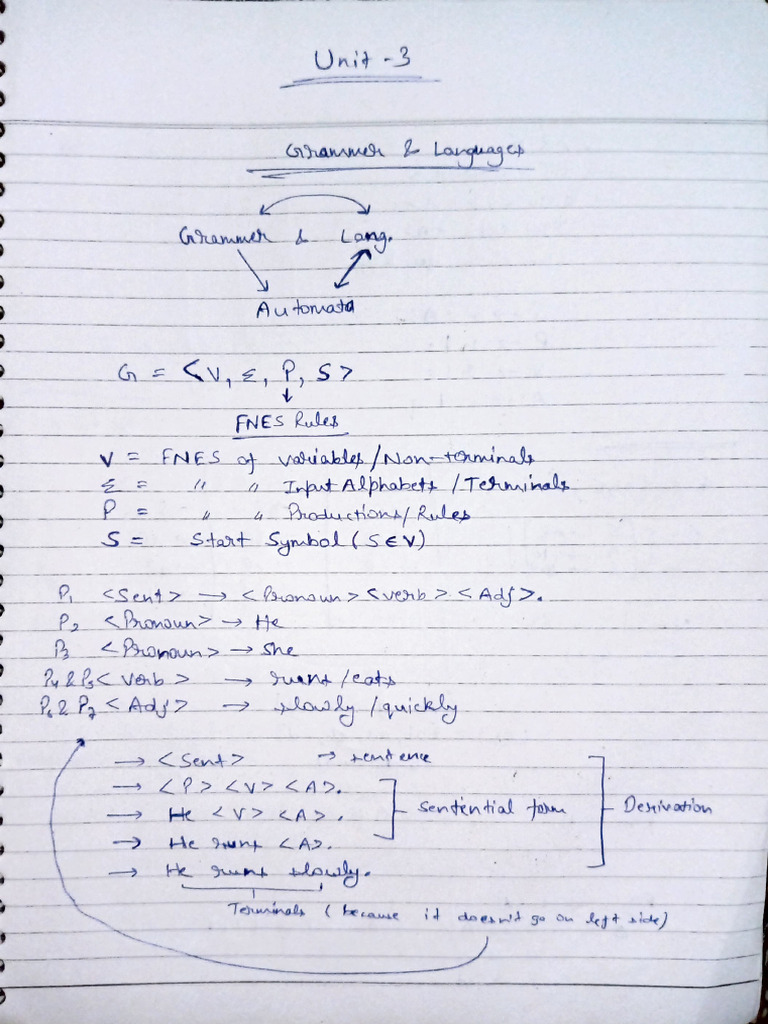 Unit -3
Grammer & Languages
Grammer & Lang.
Automata
G = <V, Σ, P, S>
FNES Rules
V = FNES of variables/Non-terminals
Σ = " " Input Alphabets / Terminals
P = " " Productions/Rules
S = Start Symbol (S ∈ V)
P1 <Sent> → <Pronoun> <verb> <Adj>.
P2 <Pronoun> → He
P3 <Pronoun> → She
P4 & P5 < Verb > → runs /eats
P6 & P7 < Adj > → slowly /quickly
→ <Sent> → sentence
→ <P> <V> <A>.
→ He <V> <A>. Sentential form Derivation
→ He runs <A>.
→ He runs slowly.
Terminals (because it doesn't go on left side)